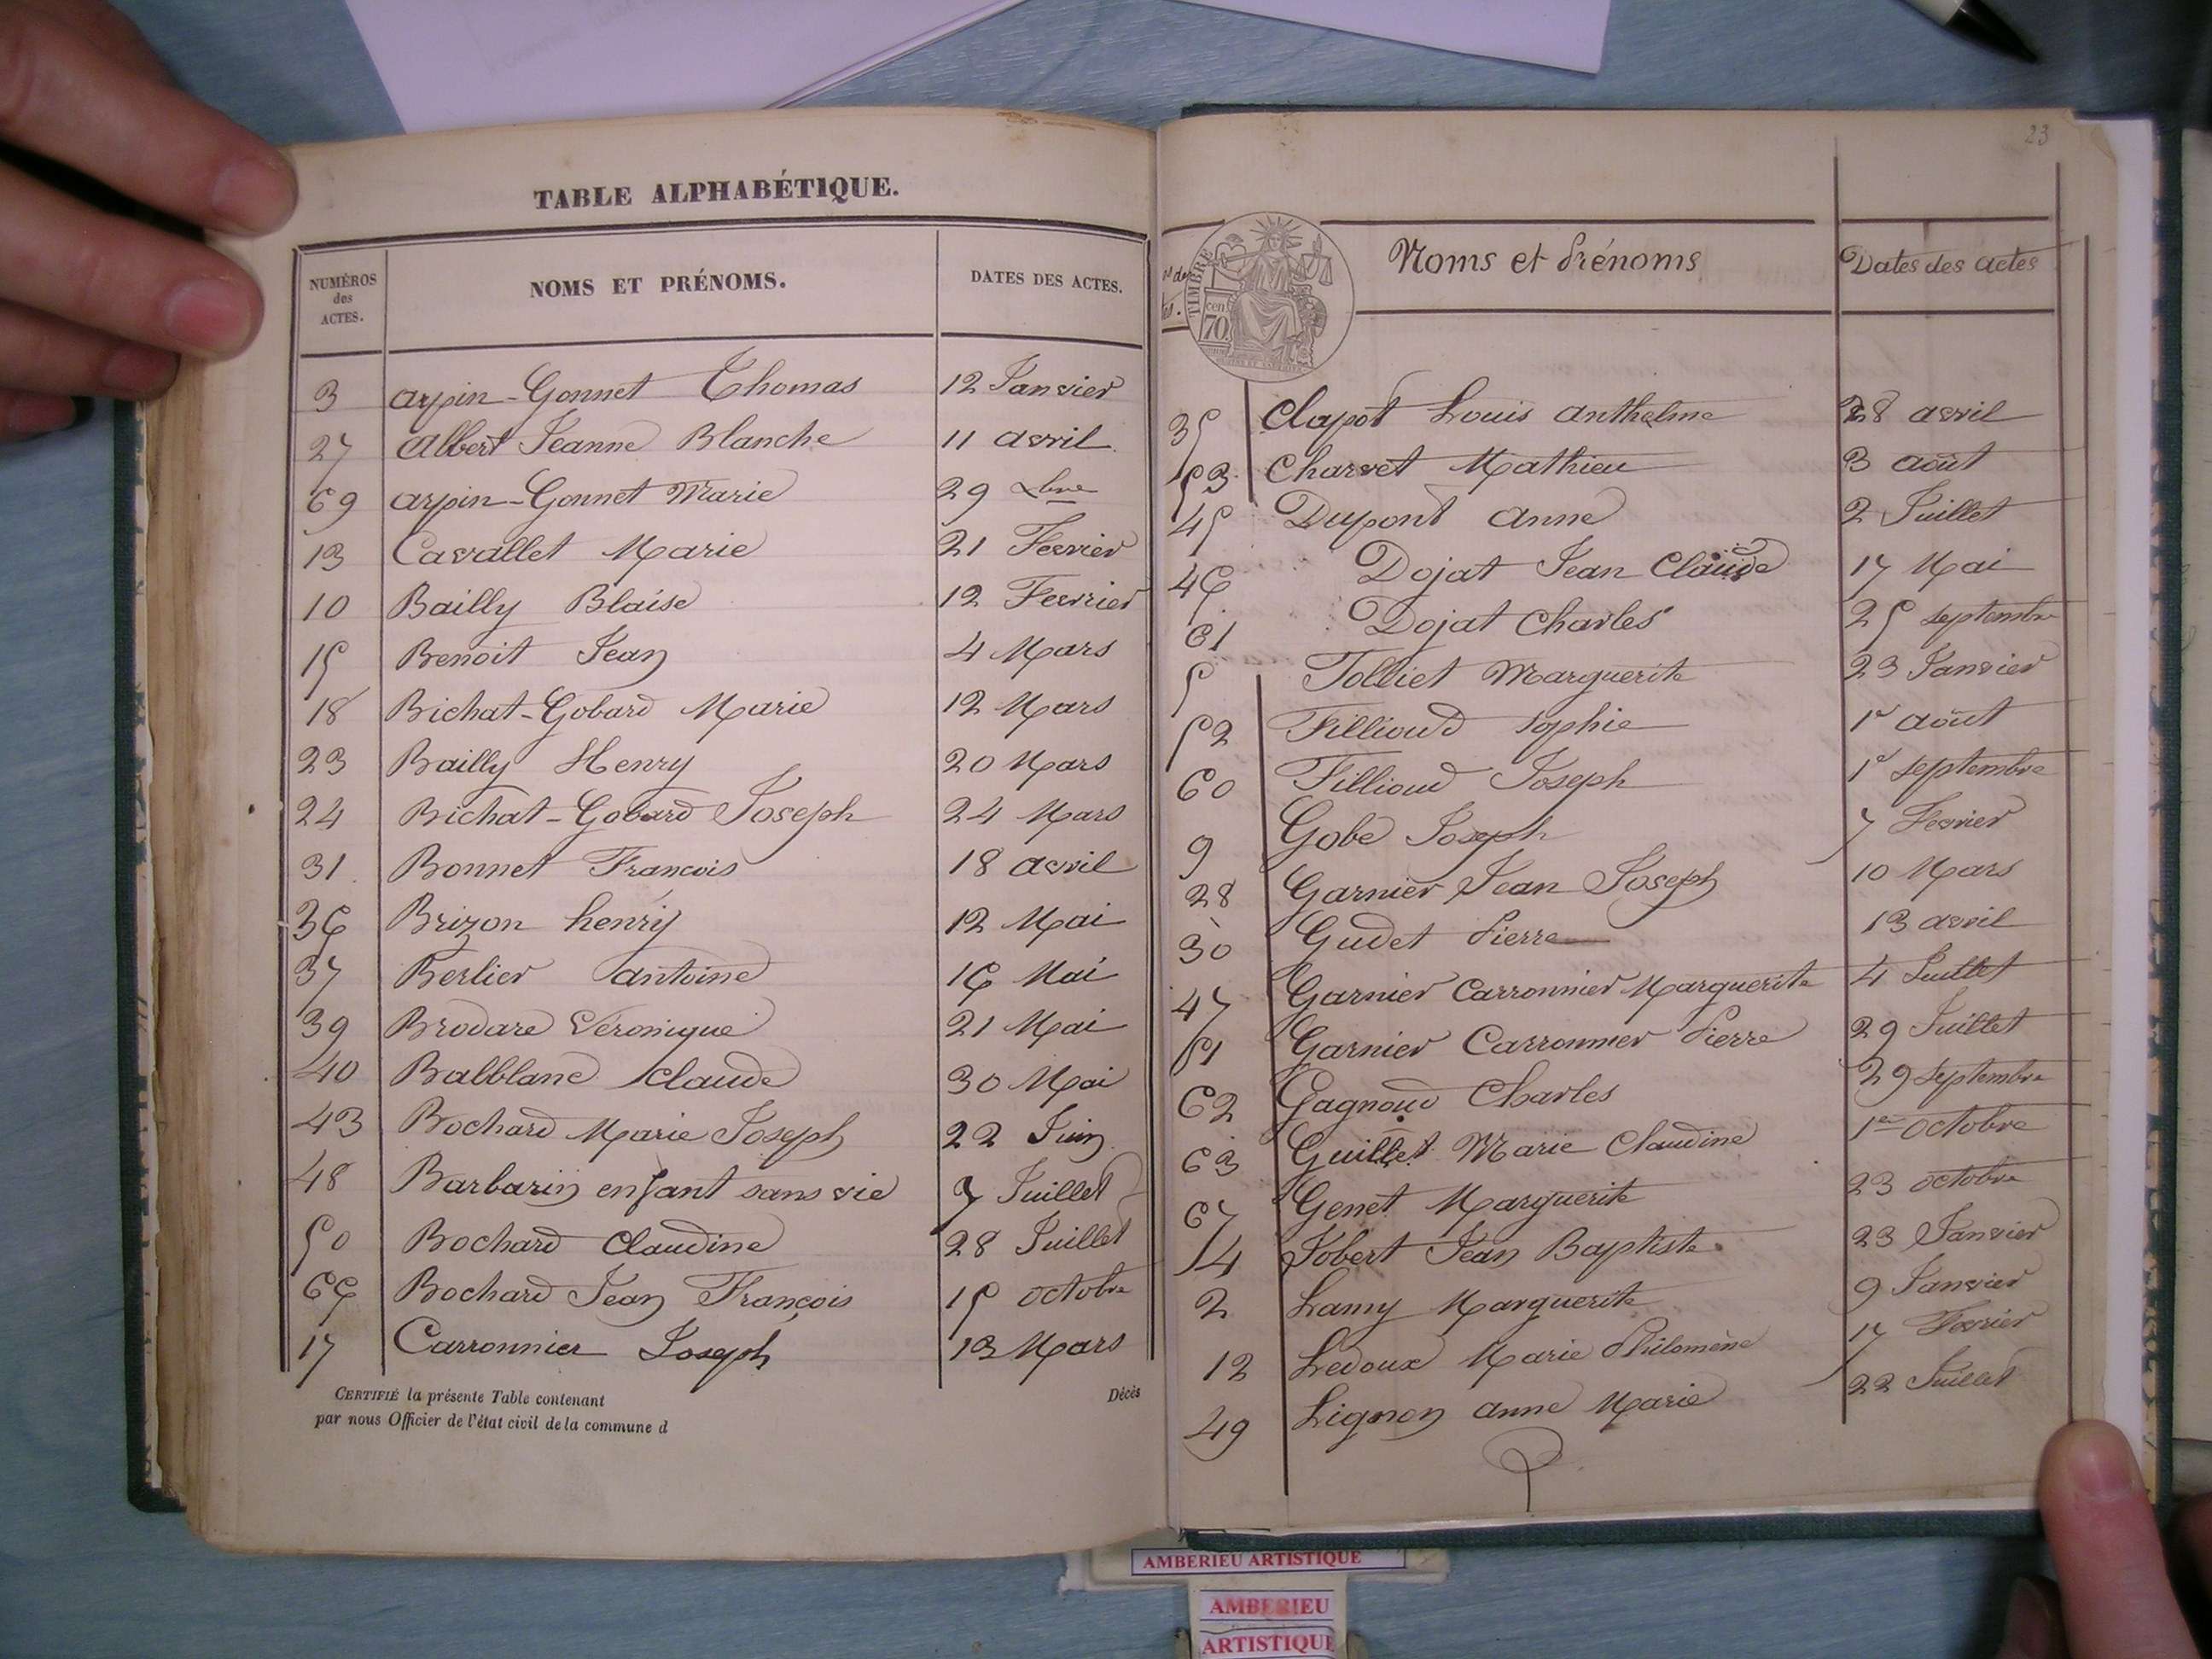 TABLE ALPHABÉTIQUE.
NUMÉROS des ACTES. NOMS ET PRÉNOMS. DATES DES ACTES.
3 Arpin-Gonnet Thomas 12 Janvier
27 Albert Jeanne Blanche 11 avril
69 Arpin-Gonnet Marie 29 Xbre
13 Cavrallet Marie 21 Fevrier
10 Bailly Blaise 12 Fevrier
15 Benoit Jean 4 Mars
18 Bichat-Gobard Marie 12 Mars
23 Bailly Henry 20 Mars
24 Bichat-Gobard Joseph 24 Mars
31 Bonnet Francois 18 avril
36 Brizon henry 12 Mai
37 Berlier antoine 16 Mai
39 Brodare Véronique 21 Mai
40 Balblanc claude 30 Mai
43 Bochard Marie Joseph 22 Juin
48 Barbarin enfant sans vie 7 Juillet
50 Bochard Claudine 28 Juillet
66 Bochard Jean François 15 octobre
17 Carronnier Joseph 13 Mars
CERTIFIÉ la présente Table contenant Décès
par nous Officier de l'état civil de la commune d
23
Nos des
TIMBRE
cen
70
Noms et Prénoms Dates des actes
35 Clapot Louis anthelme 28 avril
53 Charvet Mathieu 3 août
45 Dupont anne 2 Juillet
46 Dojat Jean Claude 17 Mai
61 Dojat Charles 25 septembre
5 Tolliet Marguerite 23 Janvier
52 Fillioud sophie 1r août
60 Fillioud Joseph 1r septembre
9 Gobe Joseph 7 Fevrier
28 Garnier Jean Joseph 10 Mars
30 Gudet Pierre 13 avril
47 Garnier Carronnier Marguerite 4 Juillet
51 Garnier Carronnier Pierre 29 Juillet
62 Gagnoud Charles 29 septembre
63 Guillet Marie Claudine 1er octobre
67 Genet Marguerite 23 octobre
14 Jobert Jean Baptiste 23 Janvier
2 Lamy Marguerite 9 Janvier
12 Ledoux Marie Philomène 17 Fevrier
49 Lignon anne Marie 22 Juillet
AMBERIEU ARTISTIQUE
AMBERIEU
ARTISTIQUE